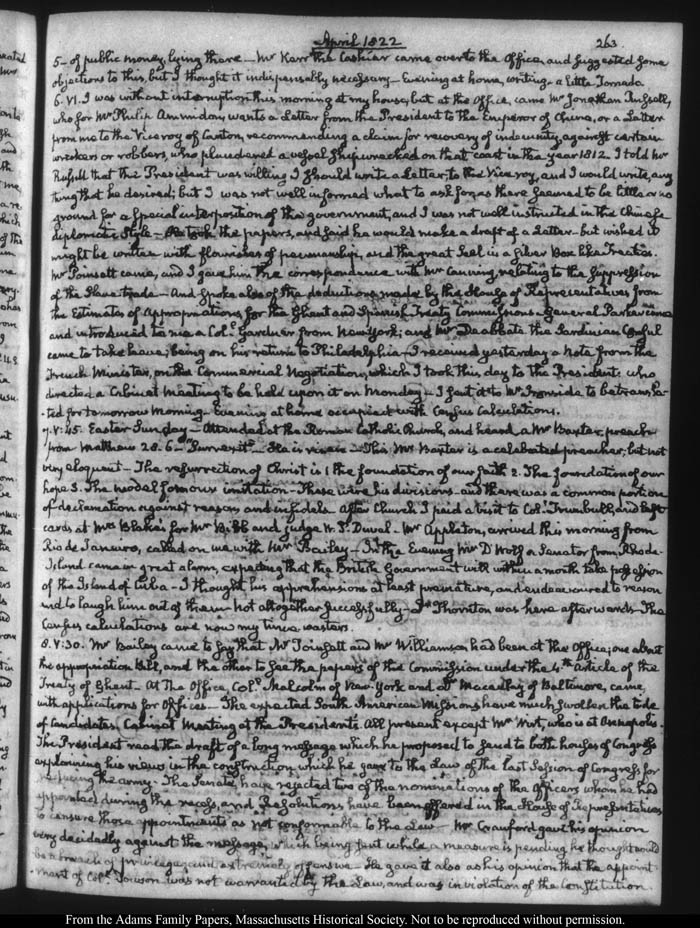 April 1822
263
5- of public money lying there — Mr Kerr the Cashier came over to the Office, and suggested some
objections to this, but I thought it indispensably necessary — Evening at home, writing — a little Tornado
6. VI. I was without interruption this morning at my house, but at the Office, came Mr Jonathan Russell,
who for Mr Philip Ammidon, wants a Letter from the President to the Emperor of China, or a Letter
from me to the Viceroy of Canton, recommending a claim for recovery of indemnity, against certain
wreckers or robbers, who plundered a vessel shipwrecked on that coast in the year 1812. I told Mr
Russell that the President was willing I should write a Letter to the Viceroy, and I would write, any
thing that he desired; but I was not well informed what to ask for, as there seemed to be little or no
ground for a special interposition of the government, and I was not well instructed in the Chinese
diplomatic Style — He took the papers, and said he would make a draft of a Letter — but wished it
might be written with flourishes of penmanship, and the great Seal in a Silver Box like Treaties.
Mr Poinsett came, and I gave him the correspondence with Mr Canning, relating to the suppression
of the Slave trade — And spoke also of the deductions made by the House of Representatives from
the Estimates of Appropriations, for the Ghent and Spanish Treaty Commissions — General Parker came
and introduced to me a Col. Gardner from New York; and Mr Deabbate the Sardinian Consul
came to take leave; being on his return to Philadelphia — I received yesterday a Note from the
French Minister, on the Commercial Negotiation, which I took this day to the President: who
directed a Cabinet meeting to be held upon it on Monday — I sent it to Mr Ironside to be transla-
-ted for tomorrow morning — Evening at home occupied with Census Calculations.
7. V:45. Easter Sunday — Attended at the Roman Catholic Church, and heard a Mr Baxter, preach
from Matthew 28. 6 — "Surrexit" — He is risen — This Mr Baxter is a celebrated preacher; but not
very eloquent — The resurrection of Christ is 1 the foundation of our faith 2. The foundation of our
hope 3. The model for our imitation — These were his divisions — and there was a common portion
of declamation against reason and infidels. After Church I paid a visit to Col. Trumbull, and left
cards at Mrs Blake's for Mr Bibb and judge W. P. Duval — Mr Appleton, arrived this morning from
Rio de Janeiro, called on me with Mr Bailey — In the Evening Mr D Wolf a Senator from, Rhode-
Island came in great alarm, expecting that the British Government will within a month take possession
of the Island of Cuba — I thought his apprehensions at least premature, and endeavoured to reason
and to laugh him out of them — Not altogether successfully — Dr Thornton was here afterwards — The
Census calculations are now my time wasters.
8. V:30. Mr Bailey came to say that Mr Tomsatt and Mr Williamson had been at the Office; one about
the appropriation Bill, and the other to see the papers of the Commission under the 4th article of the
Treaty of Ghent — At the Office, Col. Malcolm of New-York and Dr Macaulay of Baltimore, came
with applications for Offices — The expected South American Missions have much swollen the tide
of Candidates. Cabinet Meeting at the President's. All present except Mr Wirt, who is at Annapolis.
The President read the draft of a long message which he proposed to send to both houses of Congress
explaining his views in the construction which he gave to the Law of the last Session of Congress for
reducing the army — The Senate have rejected two of the nominations of the Officers whom he had
appointed during the recess, and Resolutions have been offered in the House of Representatives
to censure those appointments as not conformable to the Law — Mr Crawford gave his opinion
very decidedly against the message, which being sent while a measure is pending he thought would
be a breach of privilege, and extremely offensive — He gave it also as his opinion that the appoint-
-ment of Col. Towson was not warranted by the Law, and was in violation of the Constitution.
From the Adams Family Papers, Massachusetts Historical Society. Not to be reproduced without permission.